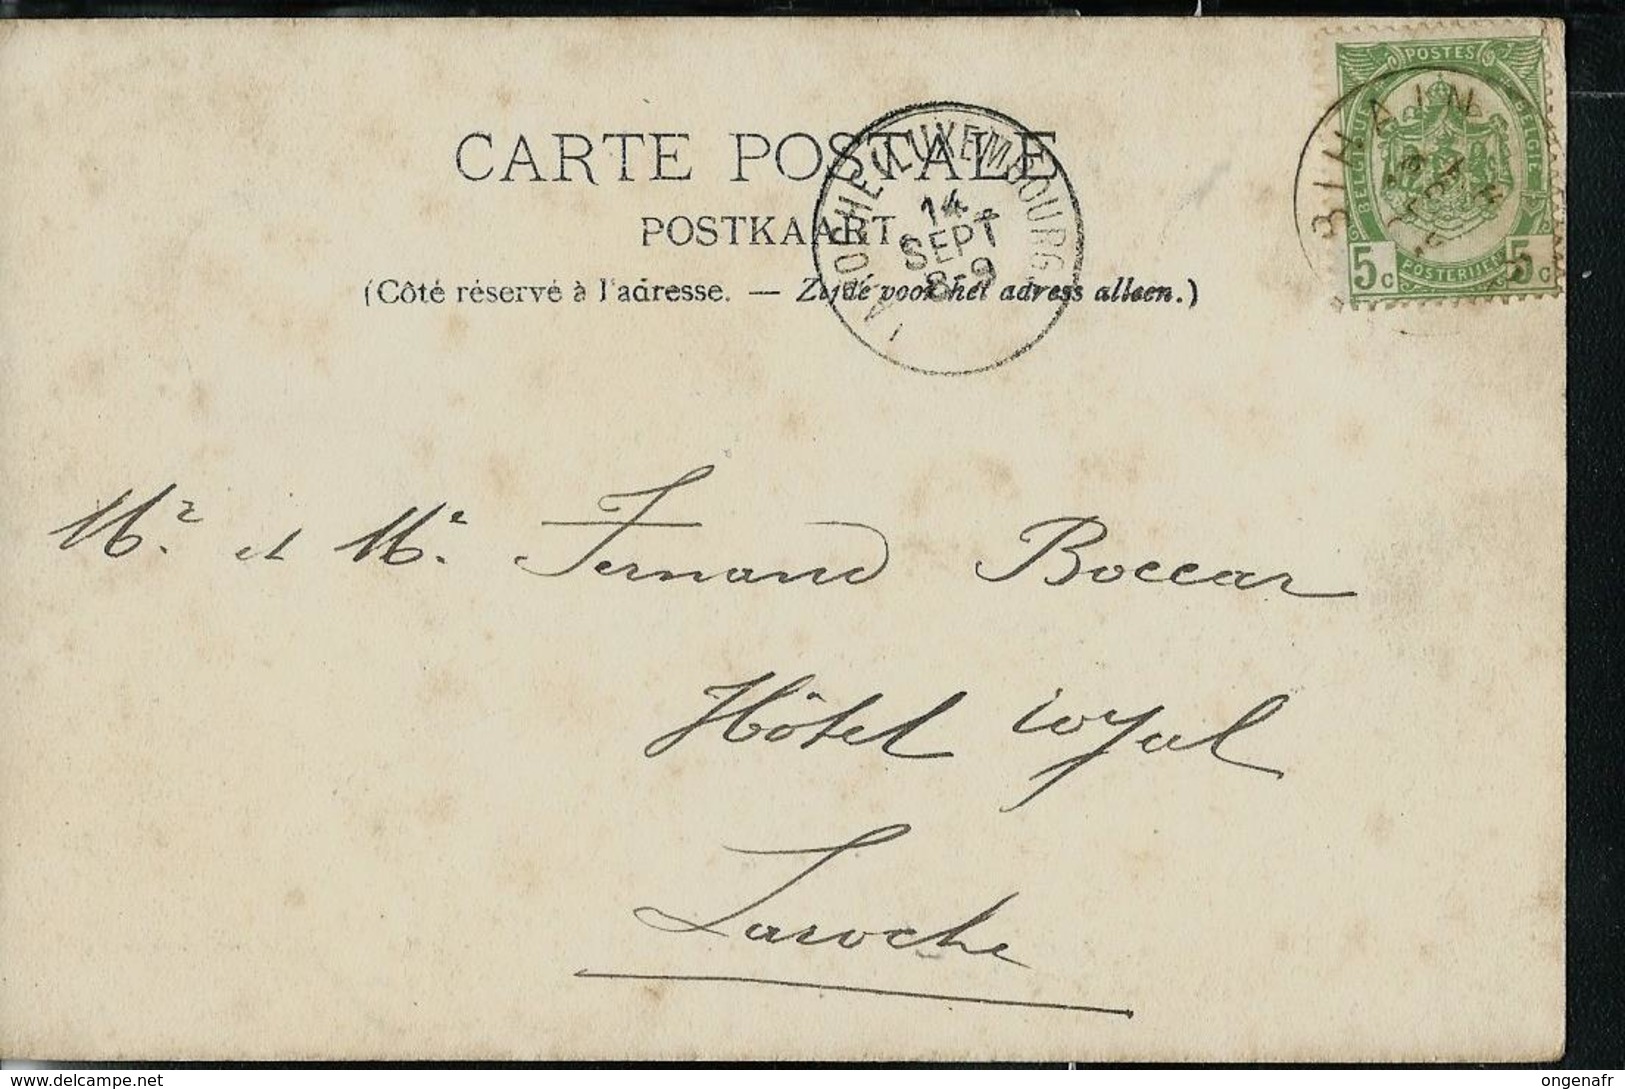 POSTES
BELGIQUE
BELGIE
5c POSTERIJEN 5c
BIHAIN
CARTE POSTALE
POSTKAART.
(Côté réservé à l'adresse. — Zijde voor het adress alleen.)
LAROCHE (LUXEMBOURG)
14
SEPT
8-9
Mr. et Me. Fernand Boccar
Hôtel
Laroche
www.delcampe.net
ongenafr